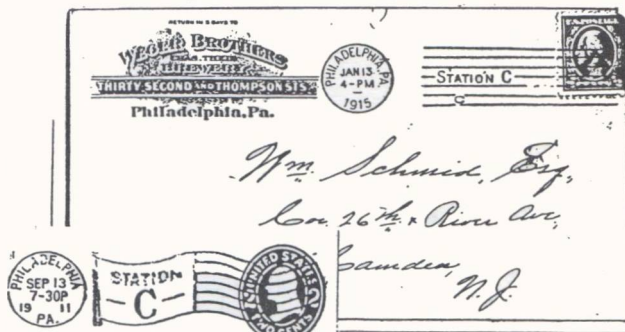 RETURN IN 5 DAYS TO
BROTHERS
BREWERY
THIRTY SECOND AND THOMPSON STS.
Philadelphia, Pa.
PHILADELPHIA, PA.
JAN 13
4-PM
1915
STATION C
U.S. POSTAGE
Wm. Schmid, Esq,
Cor. 26th & River Ave,
Camden,
N.J.
PHILADELPHIA
SEP 13
7-30P
19 11
PA.
STATION
C
UNITED STATES
2
TWO CENTS